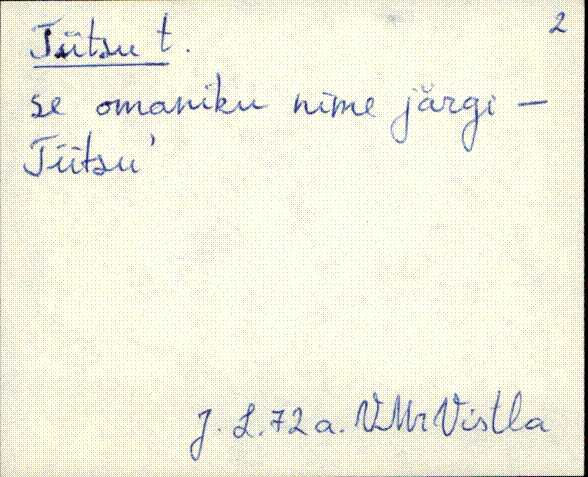 2
Tiitsu t.
se omaniku nime järgi –
Tiitsu'
J. L. 72 a. VMr Vistla